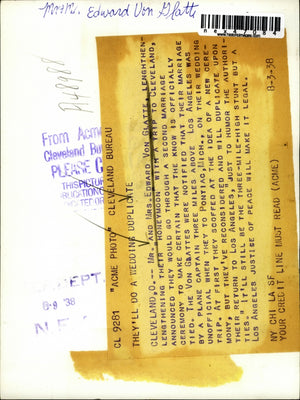 Mr & Mrs. Edward Von Glatte
neg4084
From Acme
Cleveland Bu
PLEASE C
THIS PICTUR
"ACME PHOTO" CLEVELAND BUREAU
CL 9281
8-3-38
THEY'LL DO A WEDDING DUPLICATE
CLEVELAND,O.-- MR. AND MRS. EDWARD VON GLATTE
LENGTHENING THEIR HONEYMOON WITH A TRIP TO CLEVELAND,
ANNOUNCED THEY WOULD GO THROUGH A SECOND MARRIAGE
CEREMONY TO MAKE CERTAIN THAT THE KNOW IS OFFICIALLY
TIED. THE VON GLATTES WERE TOLD THAT THEIR MARRIAGE
BY A PLANE CAPTAIN THREE MILES ABOVE LOS ANGELES WAS
UNOFFICIAL WHEN THEY TO PONTIAC,MICH ON THEIR WEDDING
TRIP. AT FIRST THEY SCOFFED AT THE IDEA OF A NEW CERE-
MONY, BUT THEY'VE RECONSIDERED AND WILL DUPLICATE UPON
THEIR RETURN TO LOS ANGELES, "JUST TO HONOR THE AUTHORI-
TIES." IT'LL STILL BE THE THREE-MILE STUNT BUT A
LOS ANGELES JUSTICE OF PEACE WILL MAKE IT LEGAL.
NY CHI LA SF
YOUR CREDIT LINE MUST READ (ACME)
DEPT
8-9 38
N.E.